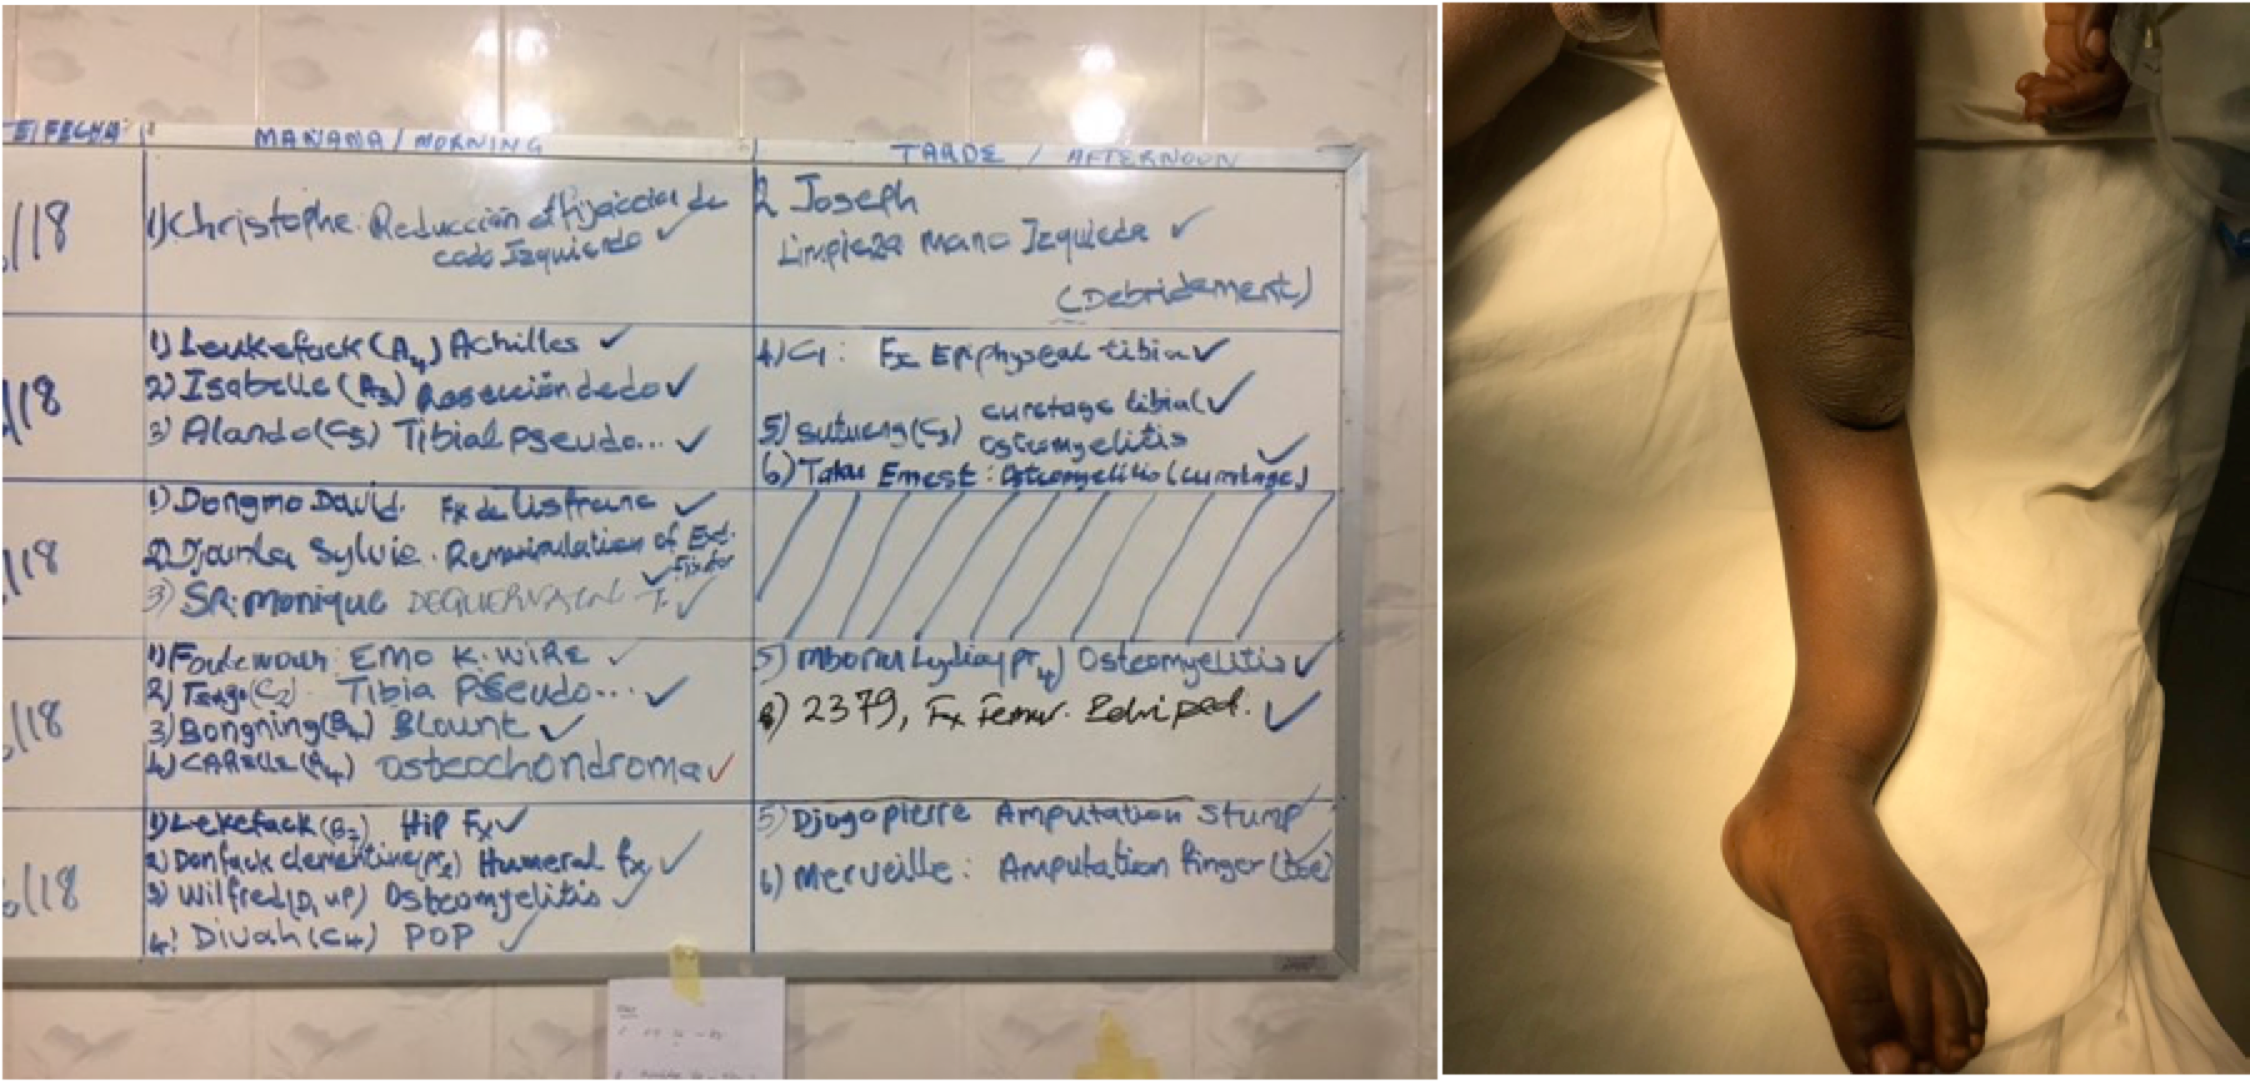 E/FECHA:
MAÑANA / MORNING
TARDE / AFTERNOON
/18
1) Christophe: Reducción et fijación de
codo Izquierdo ✓
2 Joseph
Limpieza mano Izquieda ✓
(Debridement)
/18
1) Leukefack (A4) Achilles ✓
2) Isabelle (A3) Resección dedo ✓
3) Alando (C5) Tibial pseudo... ✓
4) C1: Fx Epiphyseal tibia ✓
curetage tibial ✓
5) (C3) osteomyelitis
6) Taku Ernest: Osteomyelitis (curetage) ✓
/18
1) Dongmo David. Fx de Lisfranc ✓
2) Sylvie. Remanipulation of Ext.
Fixator ✓
3) SR. Monique DEQUERVAIN T. ✓
/18
1) EMO K. WIRE ✓
2) (C2). Tibia Pseudo... ✓
3) Bongning (B4) Blount ✓
4) CARELLE (A4) osteochondroma ✓
5) Lydia (Pr4) Osteomyelitis ✓
6) 2379, Fx Femur. ped. ✓
/18
1) Lekefack (B2) Hip Fx ✓
2) Donfack clementine (Pr2) Humeral fx ✓
3) Wilfred (D, up) Osteomyelitis ✓
4) Divah (C4) POP ✓
5) Djogo pierre Amputation Stump ✓
6) Merveille: Amputation finger (toe) ✓